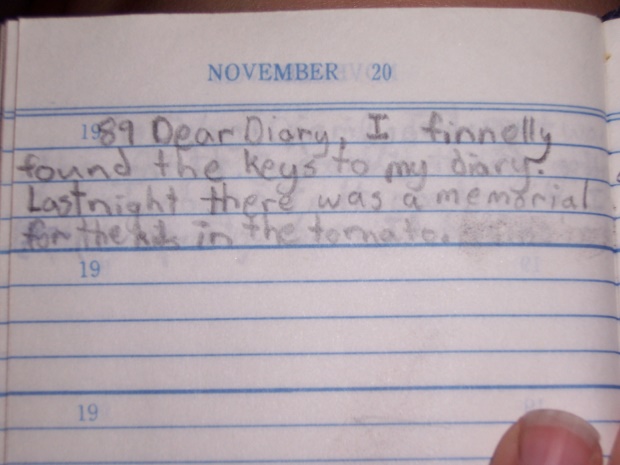 NOVEMBER 20
1989 Dear Diary, I finnelly
found the keys to my diary.
Last night there was a memorial
for the kids in the tornato.
19
19